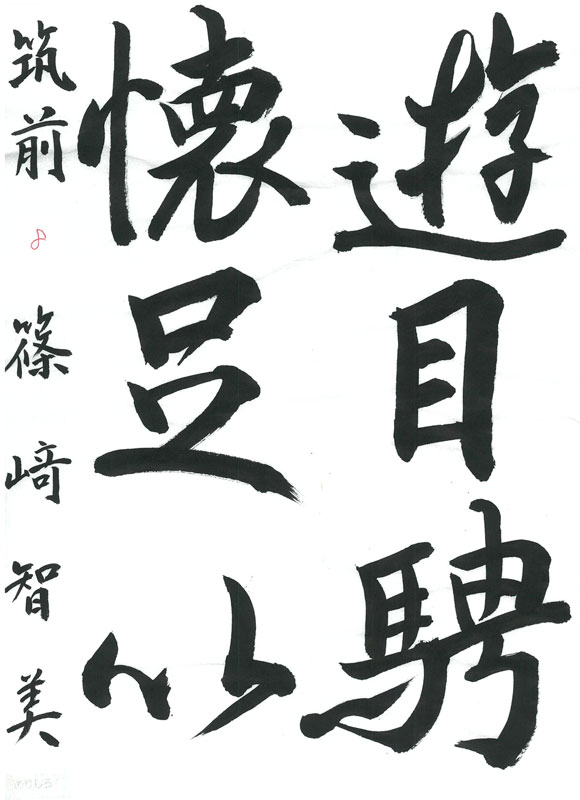 遊目騁
懐足以
筑前 8 篠﨑智美